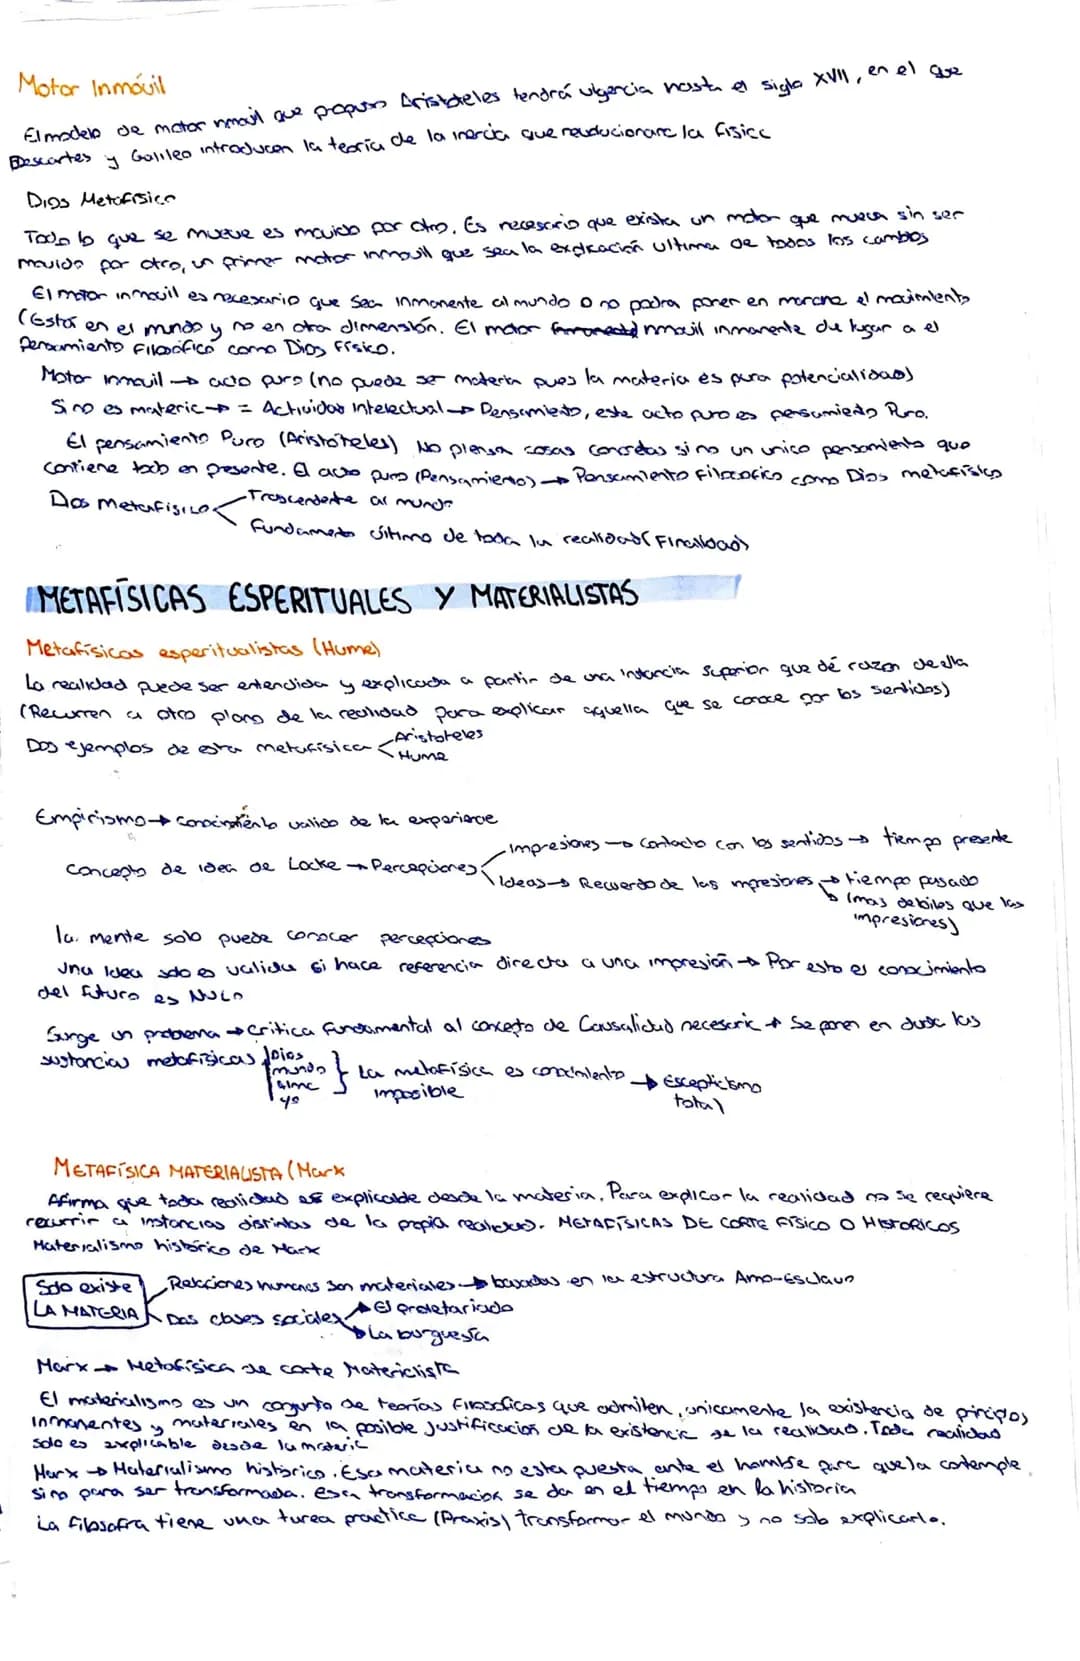 Motor Inmóvil
El modelo de motor nmovil que propuso Aristoteles tendrá vigencia hasta el siglo XVII, en el que
Descartes y Galileo introducen la teoría de la inercia que revolucionara la física
Dios Metafísico
Todo lo que se mueve es movido por otro. Es necesario que exista un motor que mueva sin ser
movido por otro, un primer motor inmovil que sea la explicación última de todos los cambios
El motor inmovil es necesario que sea inmanente al mundo o no podra poner en marcha el movimiento
(Estar en el mundo y no en otra dimensión. El motor nmovil inmanente da lugar a el
Pensamiento Filosófico como Dios Físico.
Motor inmovil → acto puro (no puede ser materia pues la materia es pura potencialidad)
Si no es materia → = Actividad Intelectual → Pensamiento, este acto puro es pensamiento Puro.
El pensamiento Puro (Aristóteles) No piensa cosas concretas si no un unico pensamiento que
contiene todo en presente. El acto puro (Pensamiento) → Pensamiento Filosofico como Dios metafísico
Dios metafísico Trascendente al mundo
Fundamento último de toda la realidad (Finalidad)
METAFÍSICAS ESPERITUALES Y MATERIALISTAS
Metafísicas esperitualistas (Hume)
La realidad puede ser entendida y explicada a partir de una instancia superior que dé razon de ella
(Recurren a otro plano de la realidad para explicar aquella que se conoce por los sentidos)
Dos ejemplos de esta metafísica Aristoteles
Hume
Empirismo → conocimiento valido de la experience
Concepto de idea de Locke → Percepciones Impresiones → Contacto con los sentidos → tiempo presente
Ideas → Recuerdo de las mpresiones → tiempo pasado
(mas debiles que las
impresiones)
la mente solo puede conocer percepciones
Una idea solo es valida si hace referencia directa a una impresión → Por esto el conocimiento
del futuro es NULO
Surge un problema → Critica fundamental al concepto de Causalidad necesaria → Se ponen en duda las
sustancias metafísicas Dios
mundo
alma
yo
La metafísica es conocimiento
imposible
→ Escepticismo
total
METAFÍSICA MATERIALISTA (Marx
Afirma que toda realidad es explicable desde la materia. Para explicar la realidad no se requiere
recurrir a instancias distintas de la propia realidad. METAFÍSICAS DE CORTE FÍSICO O HISTORICOS
Materialismo histórico de Marx
Solo existe
LA MATERIA
Relaciones humanas son materiales → basadas en la estructura Amo-Esclavo
Dos clases sociales El proletariado
La burguesía
Marx → Metafísica de corte Materialista
El materialismo es un conjunto de teorías Filosoficas que admiten unicamente la existencia de piricipios
inmanentes y materiales en la posible justificación de la existencia de la realidad. Toda realidad
solo es explicable desde la materia
Marx → Materialismo histórico. Esa materia no esta puesta ante el hombre para que la contemple
sino para ser transformada. Esa transformacion se da en el tiempo en la historia
La filosofía tiene una tarea practica (Praxis) transformar el mundo y no solo explicarlo.